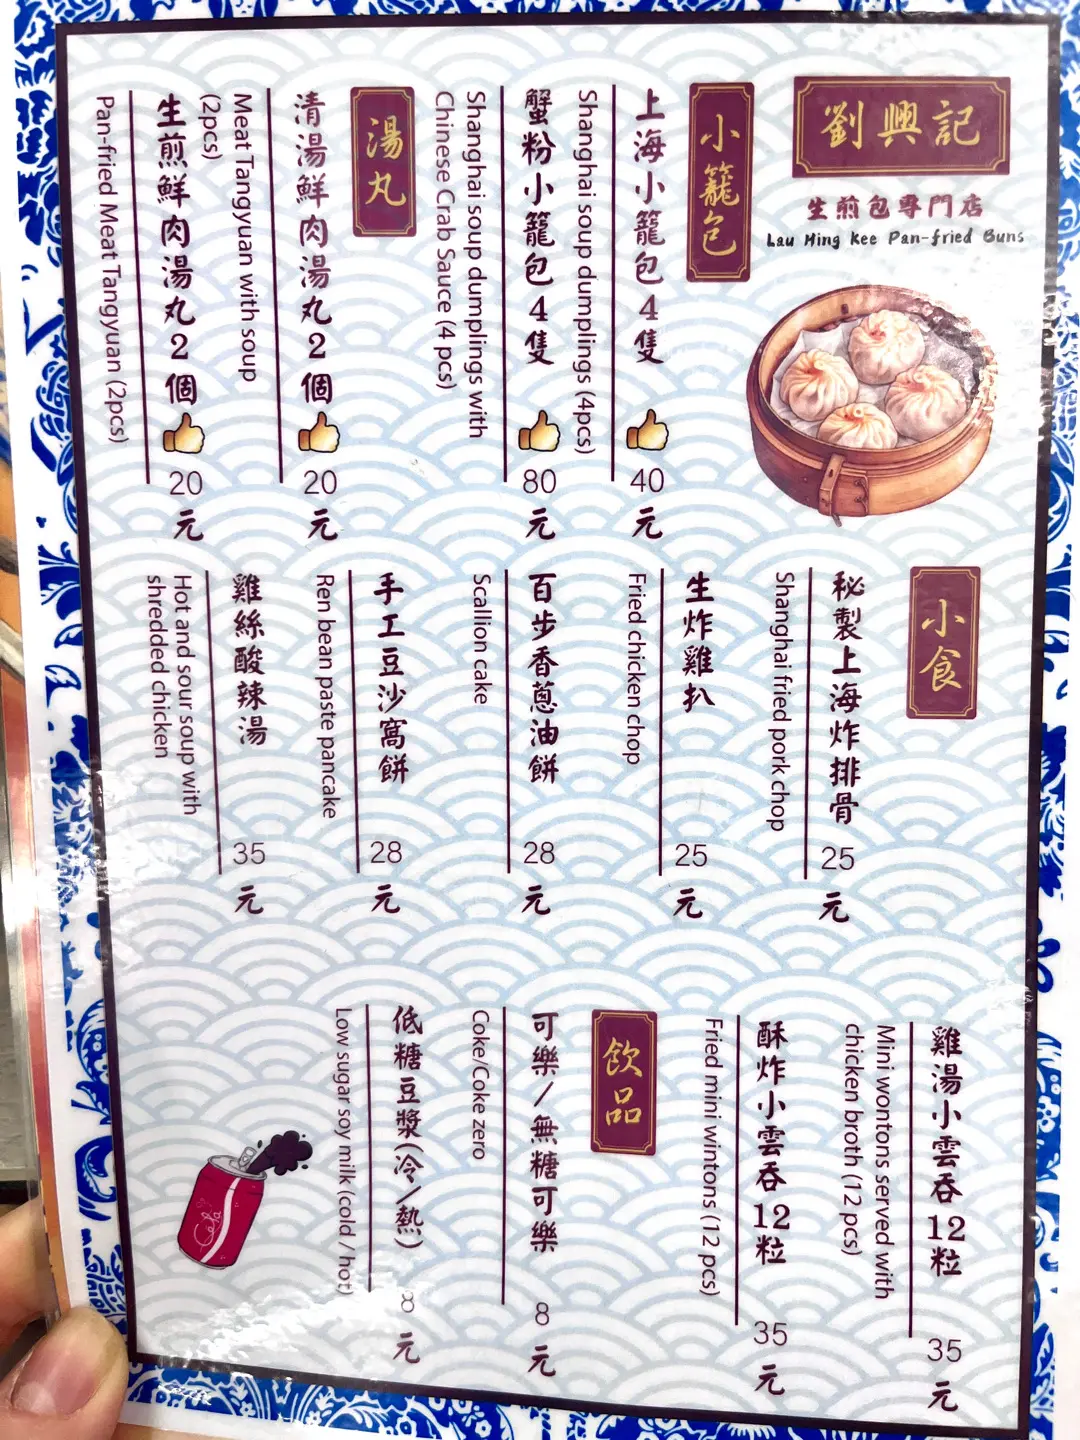 劉興記
生煎包專門店
Lau Hing Kee Pan-fried Buns
小籠包
上海小籠包4隻 40元
Shanghai soup dumplings (4pcs)
蟹粉小籠包4隻 80元
Shanghai soup dumplings with
Chinese Crab Sauce (4 pcs)
湯丸
清湯鮮肉湯丸2個 20元
Meat Tangyuan with soup
(2pcs)
生煎鮮肉湯丸2個 20元
Pan-fried Meat Tangyuan (2pcs)
小食
秘製上海炸排骨 25元
Shanghai fried pork chop
生炸雞扒 25元
Fried chicken chop
百步香蔥油餅 28元
Scallion cake
手工豆沙窩餅 28元
Ren bean paste pancake
雞絲酸辣湯 35元
Hot and sour soup with
shredded chicken
雞湯小雲吞12粒 35元
Mini wontons served with
chicken broth (12 pcs)
酥炸小雲吞12粒 35元
Fried mini wintons (12 pcs)
飲品
可樂/無糖可樂 8元
Coke/Coke zero
低糖豆漿(冷/熱) 8元
Low sugar soy milk (cold / hot)
Cola